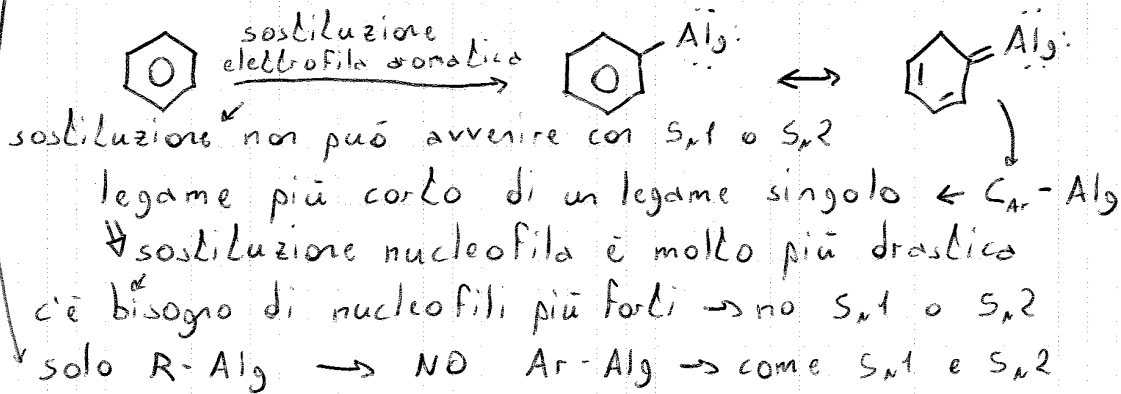 sostituzione
elettrofila aromatica
Alg: ↔ Alg:
sostituzione non può avvenire con SN1 o SN2
legame più corto di un legame singolo ← CAr - Alg
⇓ sostituzione nucleofila è molto più drastica
c'è bisogno di nucleofili più forti → no SN1 o SN2
solo R-Alg → NO Ar-Alg → come SN1 e SN2